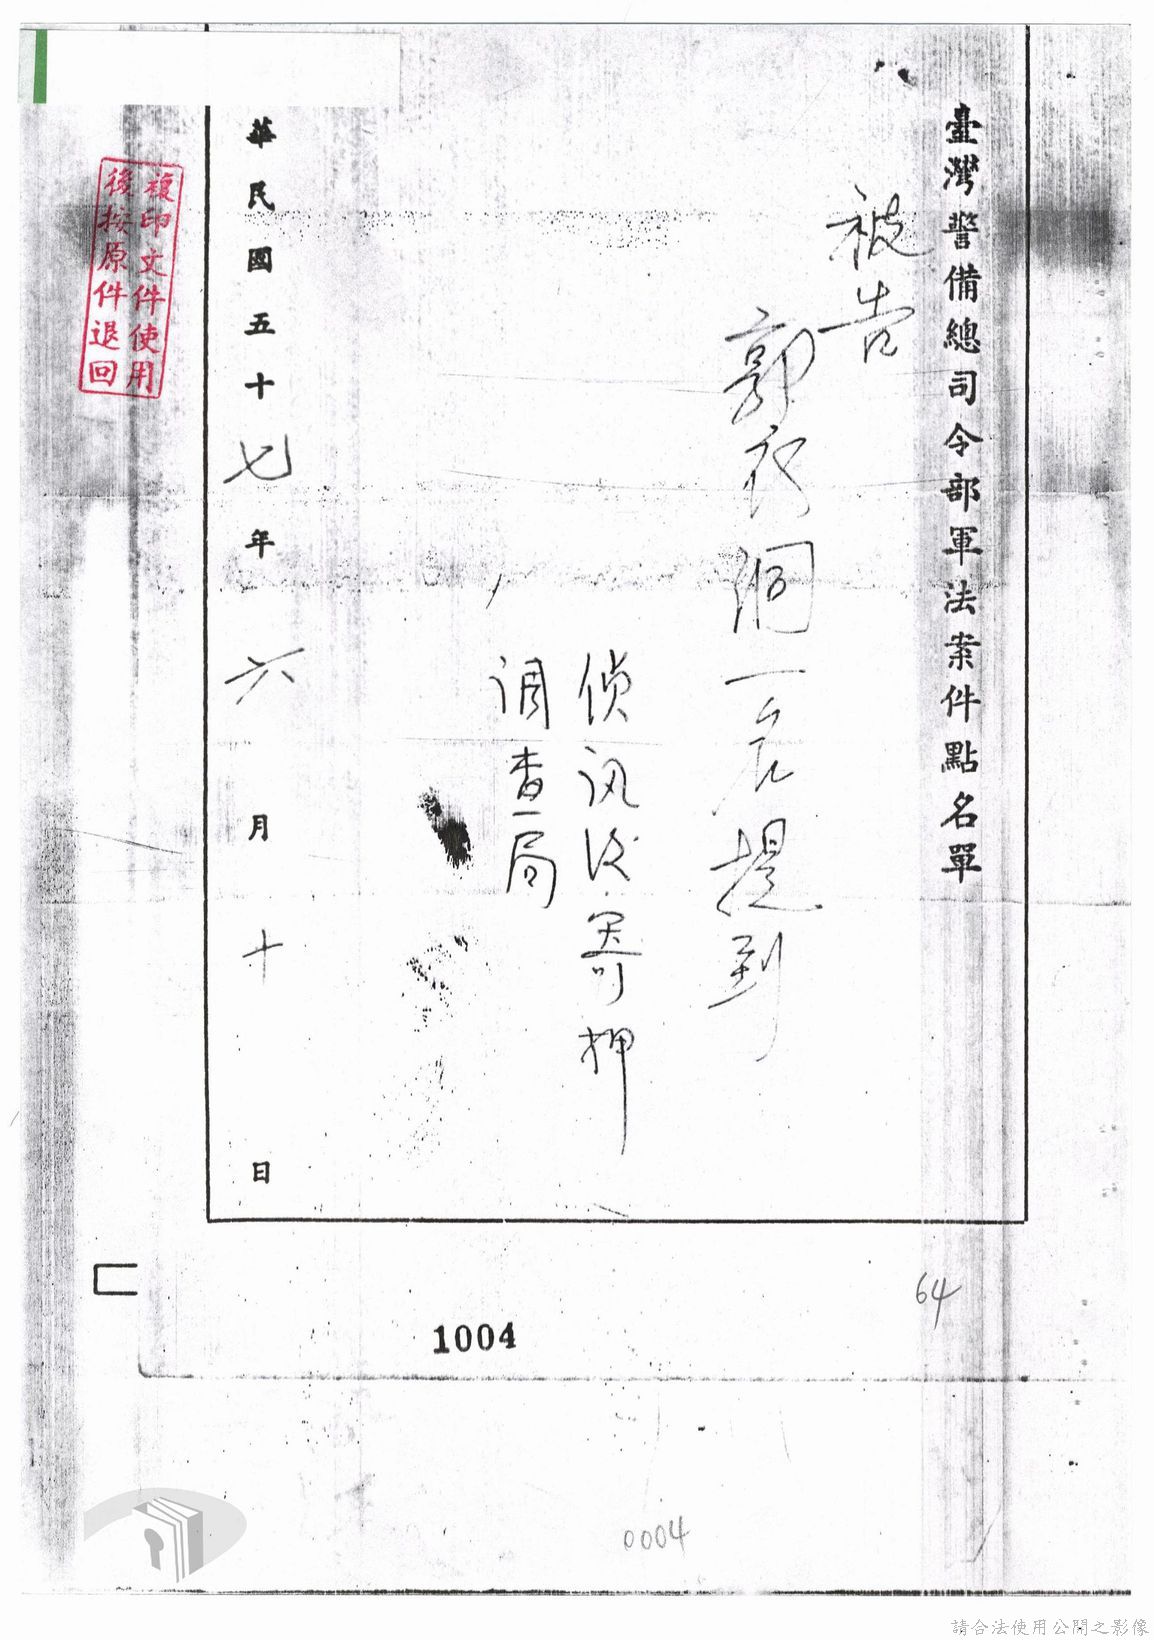 臺灣警備總司令部軍法案件點名單
被告
郭衣洞一名提到
偵訊後寄押
調查局
華民國五十七年六月十日
複印文件使用
後按原件退回
64
1004
0004
請合法使用公開之影像